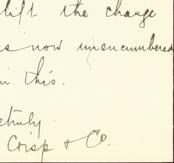 lift the charge
is now unencumbered
in this.
truly
Crisp & Co.